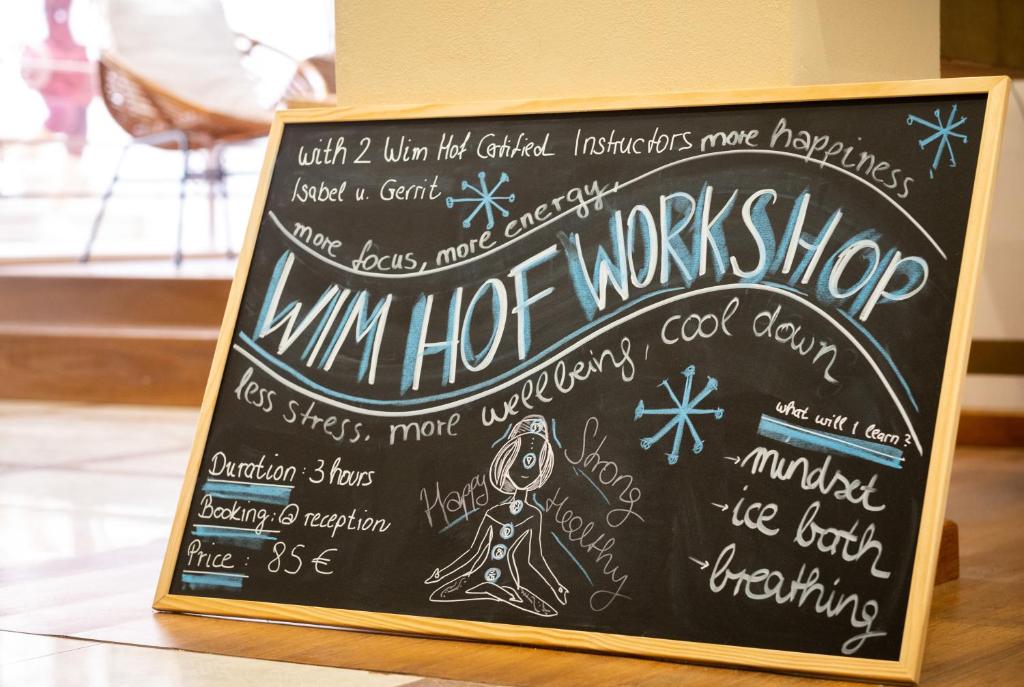 with 2 Wim Hof Certified Instructors
Isabel u. Gerrit
more focus, more energy, more happiness
WIM HOF WORKSHOP
less stress. more wellbeing, cool down
Duration: 3 hours
Booking: @ reception
Price: 85 €
Happy
Strong
Healthy
what will I learn?
→mindset
→ice bath
→breathing